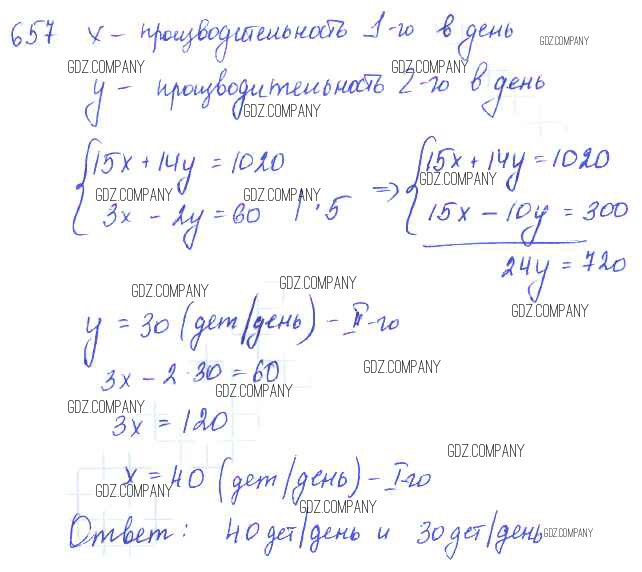 657 x – производительность 1-го в день
GDZ.COMPANY
GDZ.COMPANY
y – производительность 2-го в день
GDZ.COMPANY
{15x + 14y = 1020 => {15x + 14y = 1020
GDZ.COMPANY
GDZ.COMPANY GDZ.COMPANY
3x – 2y = 60 | · 5 15x – 10y = 300
24y = 720
GDZ.COMPANY GDZ.COMPANY
GDZ.COMPANY
y = 30 (дет/день) – II-го
GDZ.COMPANY
3x – 2 · 30 = 60
GDZ.COMPANY
GDZ.COMPANY
3x = 120
GDZ.COMPANY
x = 40 (дет/день) – I-го
GDZ.COMPANY
GDZ.COMPANY
Ответ: 40 дет/день и 30 дет/день
GDZ.COMPANY